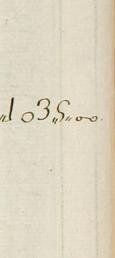 „1035„00.